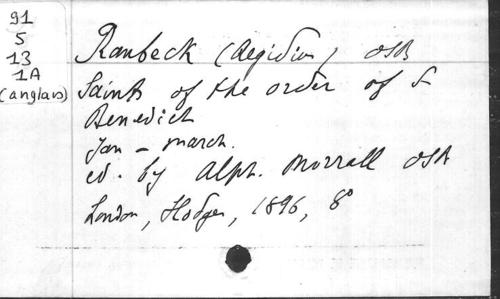 91
5
13
1A
(anglais)
Ranbeck (Aegidius) OSB
Saints of the order of S
Benedict
Jan - march.
ed. by Alph. Morrall OSB
London, Hodges, 1896, 8°